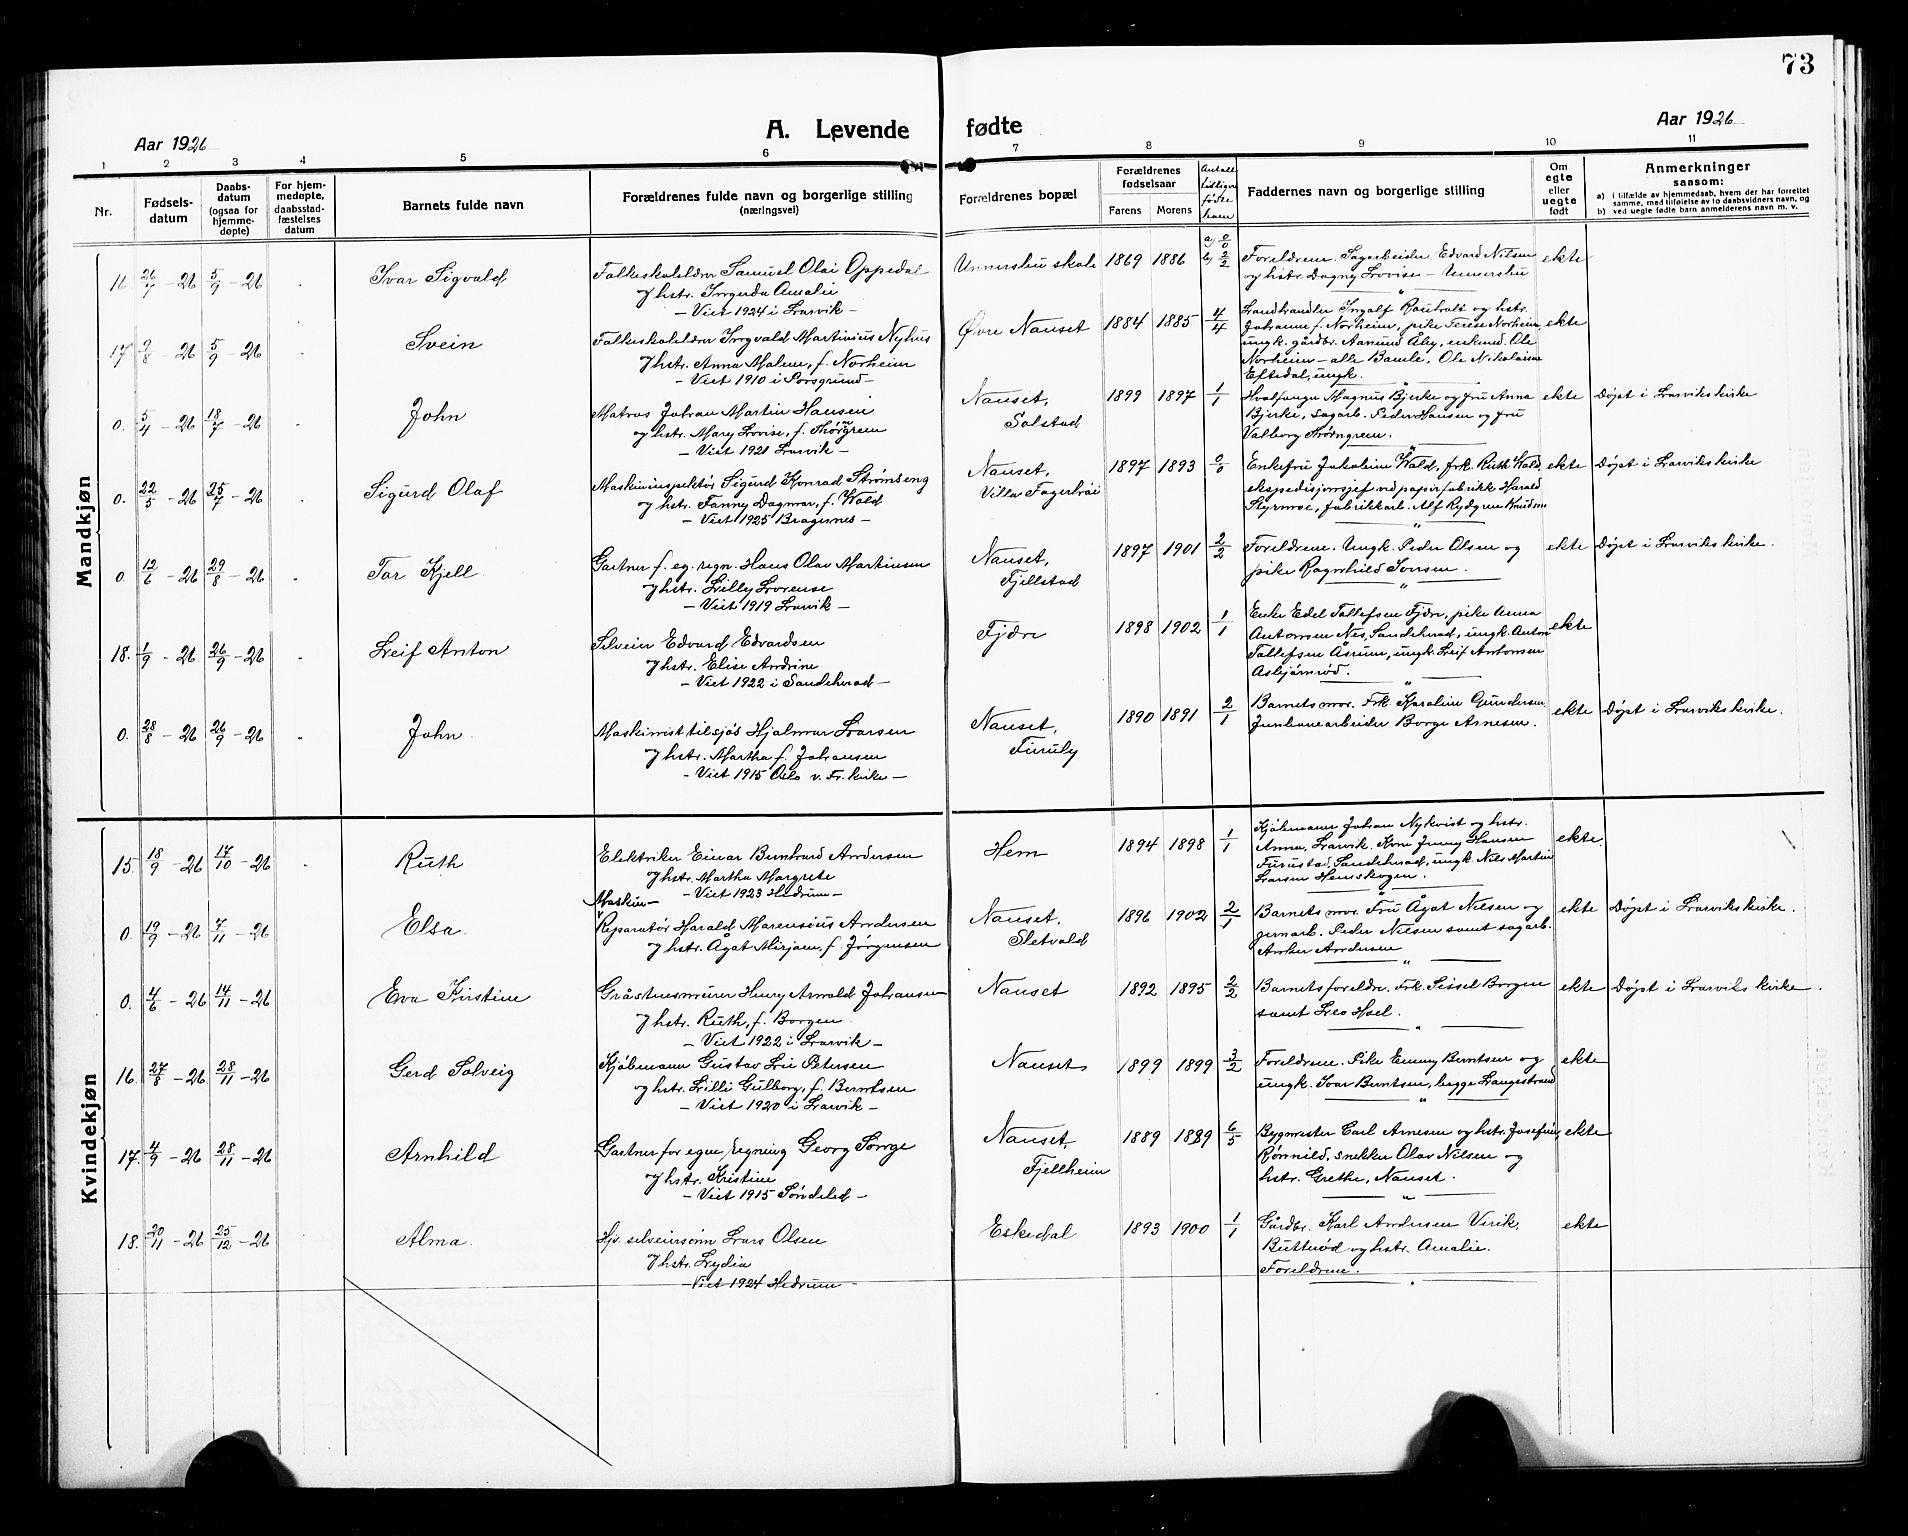 73
A. Levende fødte
Aar 1926
Aar 1926
1 2 3 4 5 6 7 8 9 10 11
Nr.
Fødsels-
datum
Daabs-
datum
(ogsaa for
hjemme-
døpte)
For hjem-
medøpte,
daabsstad-
fæstelses
datum
Barnets fulde navn
Forældrenes fulde navn og borgerlige stilling
(næringsvei)
Forældrenes bopæl
Forældrenes
fødselsaar
Farens Morens
Antall
tidligere
fødte
barn
Faddernes navn og borgerlige stilling
Om
egte
eller
uegte
født
Anmerkninger
saasom:
a) i tilfælde av hjemmedaab, hvem der har forrettet
samme, med tilføielse av to daabsvidners navn, og
b) ved uegte fødte barn anmelderens navn m. v.
Mandkjøn
16. 26/7 - 26 5/9 - 26 Ivar Sigvald
Folkeskolelærer Samuel Olai Oppedal
og hstr. Ingerda Amalie
- Viet 1924 i Larvik -
Unnershu skole 1869 1886 a) 0/0 b) 2/2
Foreldrene. Sagarbeider Edvard Nilsen
og hstr. Dagny Lovise - Unnershu
ekte
17. 9/8 - 26 5/9 - 26 Svein
Folkeskolelærer Ingvald Martinius Nyhus
og hstr. Anna Malene, f. Norheim
- Viet 1910 i Porsgrund -
Øvre Nanset 1884 1885 4/4
Landhandler Ingolf Rauholt og hstr.
Johanne f. Norheim, pike Terese Norheim
ungk. gårdbr. Aamund Åby, enkemd. Ole
Norheim - alle Bamle, Ole Nikolaisen
Eftedal, ungk.
ekte
0. 5/4 - 26 18/7 - 26 John
Matros Johan Martin Hansen
og hstr. Mary Lovise, f. Thörngren
- Viet 1921 Larvik -
Nanset,
Solstad
1899 1897 1/1
Hvalfanger Magnus Bjerke og fru Anna
Bjerke, sagarb. Peder Hansen og fru
Valborg Thörngren.
ekte Døpt i Larviks kirke
0. 22/5 - 26 25/7 - 26 Sigurd Olaf
Maskininspektør Sigurd Konrad Strømseng
og hstr. Fanny Dagmar, f. Wold
- Viet 1925 Bragernes -
Nanset,
Villa Fagertrøi
1897 1893 0/0
Enkefru Jakobine Wold, frk. Ruth Wold
ekspedisjonssjef ved papirfabrikk Harald
Styrmoe, fabrikkarb. Alf Rydgren Knudsen
ekte Døpt i Larviks kirke
0. 12/6 - 26 29/8 - 26 Tor Kjell
Gartner f. eg. regn. Hans Olav Martinsen
og hstr. Lilly Lorense
- Viet 1919 Larvik -
Nanset,
Fjellstad
1897 1901 2/2
Foreldrene. Ungk. Peder Olsen og
pike Ragnhild Jensen.
ekte Døpt i Larviks kirke.
18. 1/9 - 26 26/9 - 26 Leif Anton
Selveier Edvard Edvardsen
og hstr. Elise Andrine
- Viet 1922 i Sandeherad -
Fjære 1898 1902 1/1
Enke Edel Tollefsen Fjære, pike Anna
Antonsen Nes, Sandeherad, ungk. Anton
Tollefsen Åsrum, ungk. Leif Antonsen
Asbjørnrød.
ekte
0. 28/8 - 26 26/9 - 26 John.
Maskinist tilsjøs Hjalmar Larsen
og hstr. Martha f. Johansen
- Viet 1915 Oslo v. Fr. kirke -
Nanset,
Furuly
1890 1891 2/1
Barnets mor. Frk. Karoline Gundersen
Jernbanearbeider Borge Arnesen.
ekte Døpt i Larviks kirke.
Kvindekjøn
15. 18/9 - 26 17/10 - 26 Ruth
Elektriker Einar Berntvard Andersen
og hstr. Martha Margrete
- Viet 1923 Hedrum -
Hem 1894 1898 1/1
Kjøbmann Johan Nykvist og hstr.
Anna, Larvik. Kone Jenny Hansen
Furustad, Sandeherad, ungk. Nils Martin
Larsen Hemskogen.
ekte.
0. 19/9 - 26 7/11 - 26 Elsa.
Maskin-
Reparatør Harald Marensius Andersen
og hstr. Ågat Mirjam, f. Jørgensen
Nanset,
Sletvold
1896 1902 2/1
Barnets mor. Fru Ågat Nilsen og
jernarb. Peder Nilsen samt sagarb.
Anker Andersen
ekte Døpt i Larviks kirke.
0. 4/6 - 26 14/11 - 26 Eva Kirstine
Gråstensmurer Henry Arnold Johansen
og hstr. Ruth, f. Borgen.
- Viet 1922 i Larvik -
Nanset 1892 1895 2/2
Barnets foreldre. Frk. Sissel Borgen
samt Leo Hoel.
ekte Døpt i Larviks kirke.
16. 27/8 - 26 28/11 - 26 Gerd Solveig
Kjøbmann Gustav Lie Petersen
og hstr. Lilli Gulborg, f. Berntsen
- Viet 1920 i Larvik -
Nanset 1899 1899 3/2
Foreldrene. Pike Emmy Berntsen og
ungk. Ivar Berntsen, begge Langestrand
ekte
17. 4/9 - 26 28/11 - 26 Arnhild
Gartner for egne regning Georg Sorge
og hstr. Kristine
- Viet 1915 Søndeled -
Nanset,
Fjellheim
1889 1889 6/5
Bygmester Carl Arnesen og hstr. Josefine
Rønnild, snekker Olav Nilsen og
hstr. Grethe, Nanset.
ekte
18. 20/11 - 26 25/12 - 26 Alma.
Hjv. selveiersønn Lars Olsen
og hstr. Lydia
- Viet 1924 Hedrum -
Eskedal 1893 1900 1/1
Gårdbr. Karl Andersen Virik,
Butterød og hstr. Amalie.
Foreldrene.
ekte